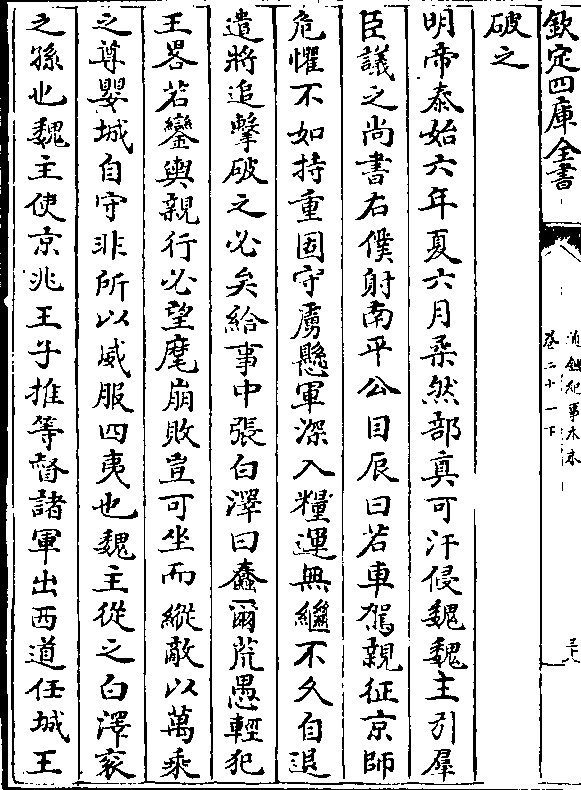 欽定四庫全書
通鑑紀事本末
卷二十一下
三十八
破之
明帝泰始六年夏六月柔然部真可汗侵魏魏主引羣
臣議之尚書右僕射南平公目辰曰若車駕親征京師
危懼不如持重固守虜懸軍深入糧運無繼不久自退
遣將追擊破之必矣給事中張白澤曰蠢爾荒愚輕犯
王畧若鑾輿親行必望麾崩敗豈可坐而縱敵以萬乘
之尊嬰城自守非所以威服四夷也魏主從之白澤衮
之孫也魏主使京兆王子推等督諸軍出西道任城王